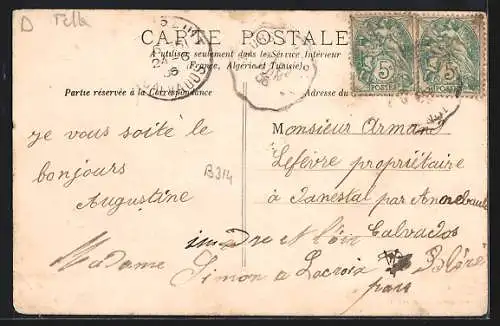 D Tella
CARTE POSTALE
A utiliser seulement dans le Service Intérieur
(France, Algérie et Tunisie)
Partie réservée à la Correspondance
Adresse du
5 5
POSTES
CALVADOS
je vous soite le
bonjours
Augustine
B314
Monsieur Armand
Lefèvre propriétaire
à Danestal par Annebault
Calvados
indre et loir
Madame Simon a Lacroix
par Bléré